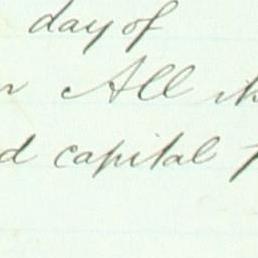 day of
All
d capital